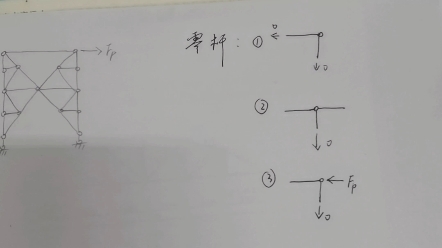 Fp
零杆: ① 0
0
② 0
③ Fp
0